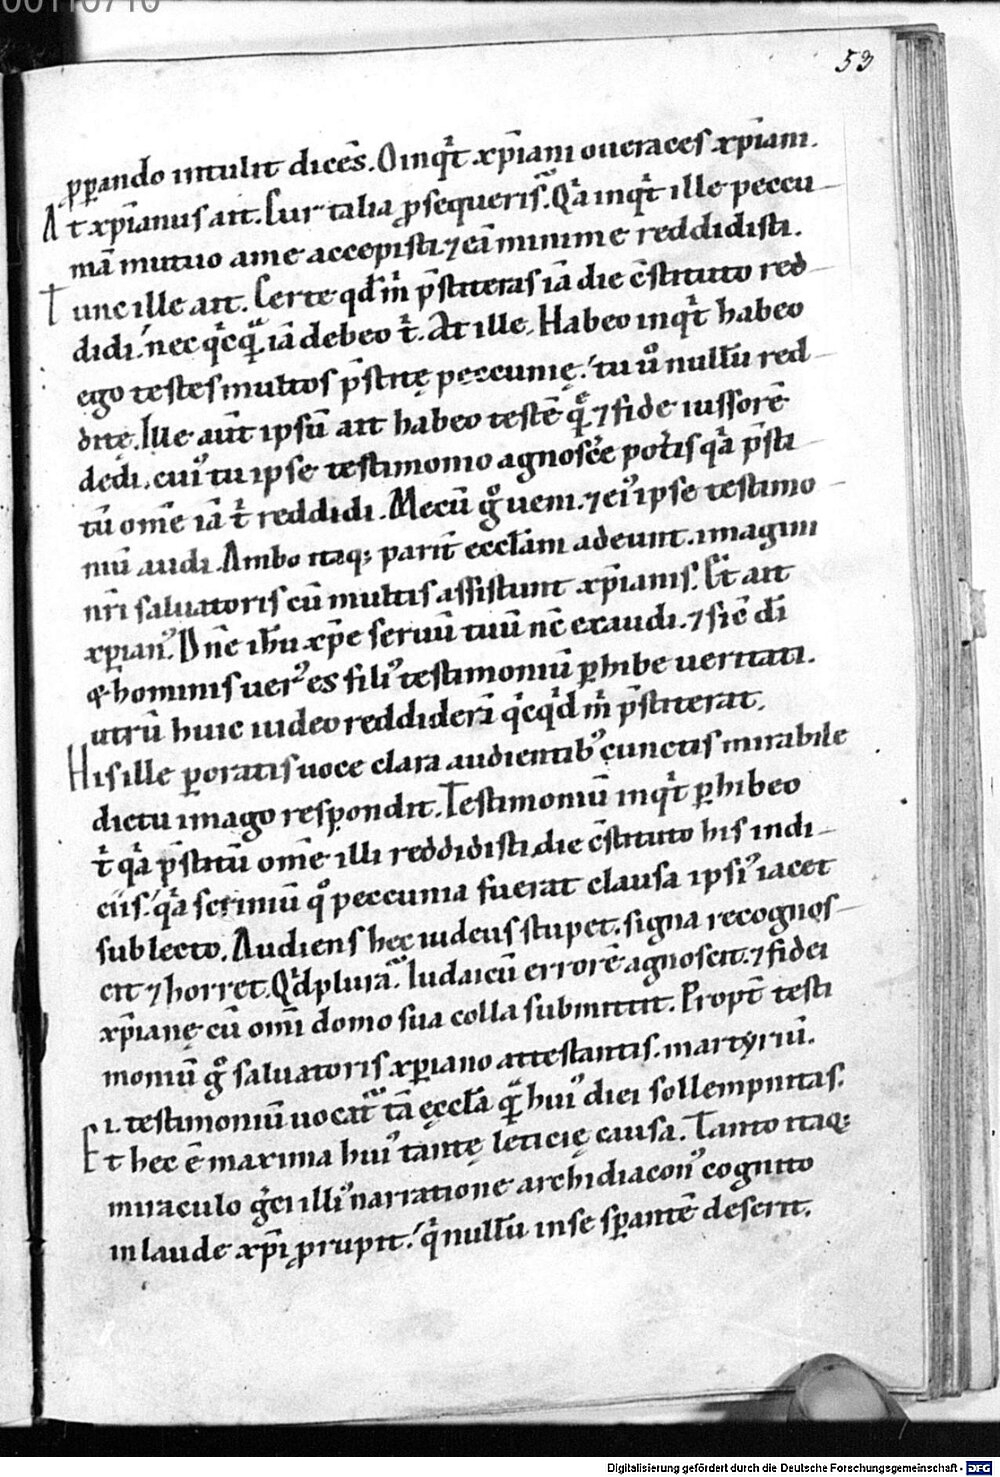 00110710
53
ꝓꝑando intulit dicēs. O inqͥt xp̄iani o ueraces xp̄iani.
At xp̄ianus ait. Cur talia ꝓsequeris. Qͥa inqͥt ille peccu-
niā mutuo a me accepisti. ⁊ eā minime reddidisti.
Tunc ille ait. Certe qd̄ m̄ p̄stiteras iā die c̄stituto red-
didi. nec qͥcqͣ iā debeo tͥ. At ille. Habeo inqͥt habeo
ego testes multos p̄stitę peccunię. tu uͦ nullū red-
ditę. Ille aūt ipsū ait habeo testē qͦ ⁊ fide iussorē
dedi. cuiꝰ tu ipse testimonio agnoscͥe potis qͥa p̄sti-
tū om̄e iā tͥ reddidi. Mecū gͦ ueni. ⁊ eiꝰ ipse testimo-
niū audi. Ambo itaq; parit̄ eccl̄am adeunt. imagini
nr̄i saluatoris cū multis assistunt xp̄ianis. Et ait
xp̄ianꝰ. Dn̄e ih̄u xp̄e seruū tuū nc̄ exaudi. ⁊ sic̄ di
& hominis uerꝰ es filiꝰ testimoniū ꝑhibe ueritati.
utrū huic iudeo reddiderī qͥcqͥd m̄ p̄stiterat.
His ille ꝑoratis uoce clara audientibꝰ cunctis mirabile
dictu imago respondit. Testimoniū inqͥt ꝑhibeo
tͥ qͥa p̄stitū om̄e illi reddidisti die c̄stituto his indi-
ciis. qͥa scriniū qͦ peccunia fuerat clausa ipsiꝰ iacet
sub lecto. Audiens hęc iudeus stupet. signa recognos-
cit ⁊ horret. Qͥd plura. Iudaicū errorē agnoscit. ⁊ fidei
xp̄ianę cū om̄i domo sua colla submittit. Propt̄ testi
moniū gͦ saluatoris xp̄iano attestantis. martyriū.
.i. testimoniū uocat̄ tā ęccl̄a qͣ huiꝰ diei sollempnitas.
Et hec ē maxima huiꝰ tantę leticię causa. Tanto itaq;
miraculo gͥci illiꝰ narratione archidiaconꝰ cognito
in laude xp̄i ꝓrupit. qͥ nullū in se sꝑantē deserit.
Digitalisierung gefördert durch die Deutsche Forschungsgemeinschaft - DFG